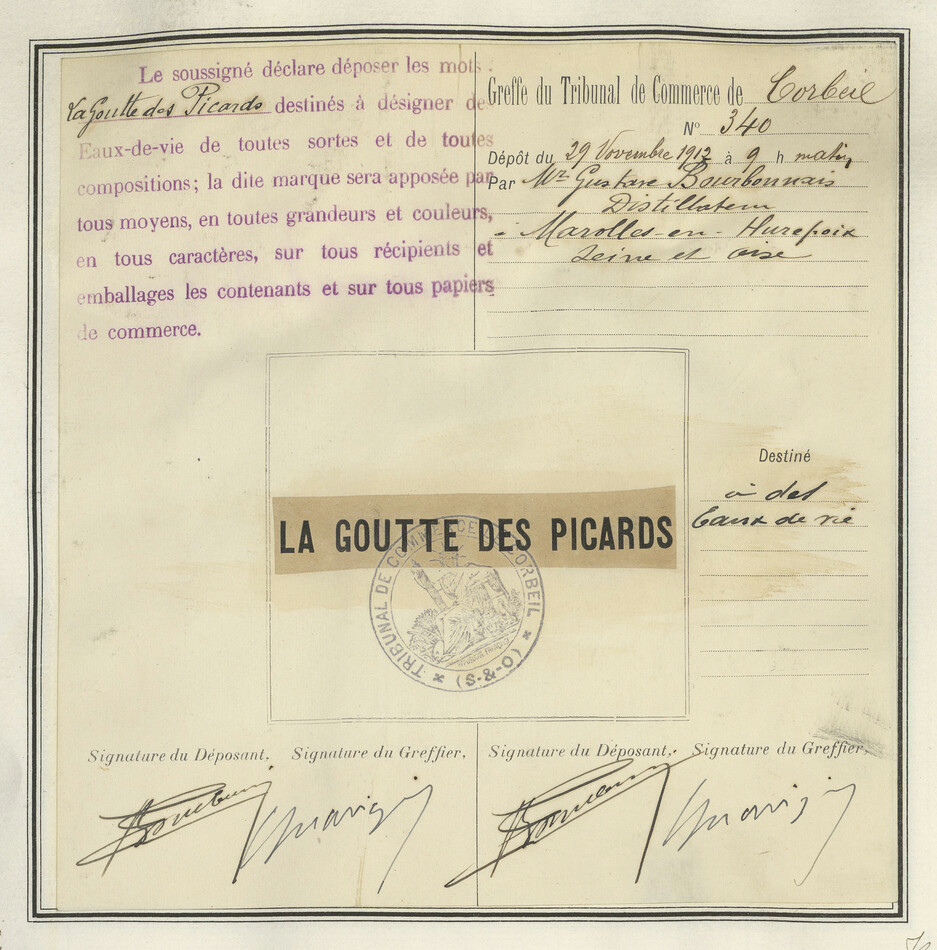 Le soussigné déclare déposer les mots :
La Goutte des Picards destinés à désigner de
Eaux-de-vie de toutes sortes et de toutes
compositions; la dite marque sera apposée par
tous moyens, en toutes grandeurs et couleurs,
en tous caractères, sur tous récipients et
emballages les contenants et sur tous papiers
de commerce.
Greffe du Tribunal de Commerce de Corbeil
N° 340
Dépôt du 29 Novembre 1912 à 9 h matin
Par Mr Gustave Bourbonnais
Distillateur
à Marolles-en-Hurepoix
Seine et Oise
Destiné
à des
Eaux de vie
LA GOUTTE DES PICARDS
TRIBUNAL DE COMMERCE DE CORBEIL
(S-&-O)
Signature du Déposant, Signature du Greffier,
Signature du Déposant, Signature du Greffier,